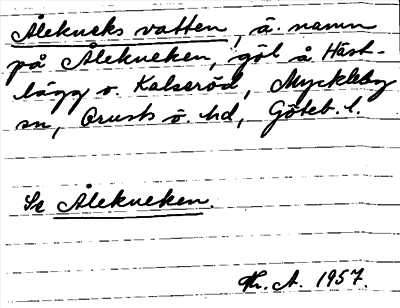 Ålekneks vatten, ä. namn
på Ålekneken, göl å Häst-
lägg v. Kalseröd, Myckleby
sn, Orusts ö. hd, Göteb. l.
Se Ålekneken.
Hr. A. 1957.